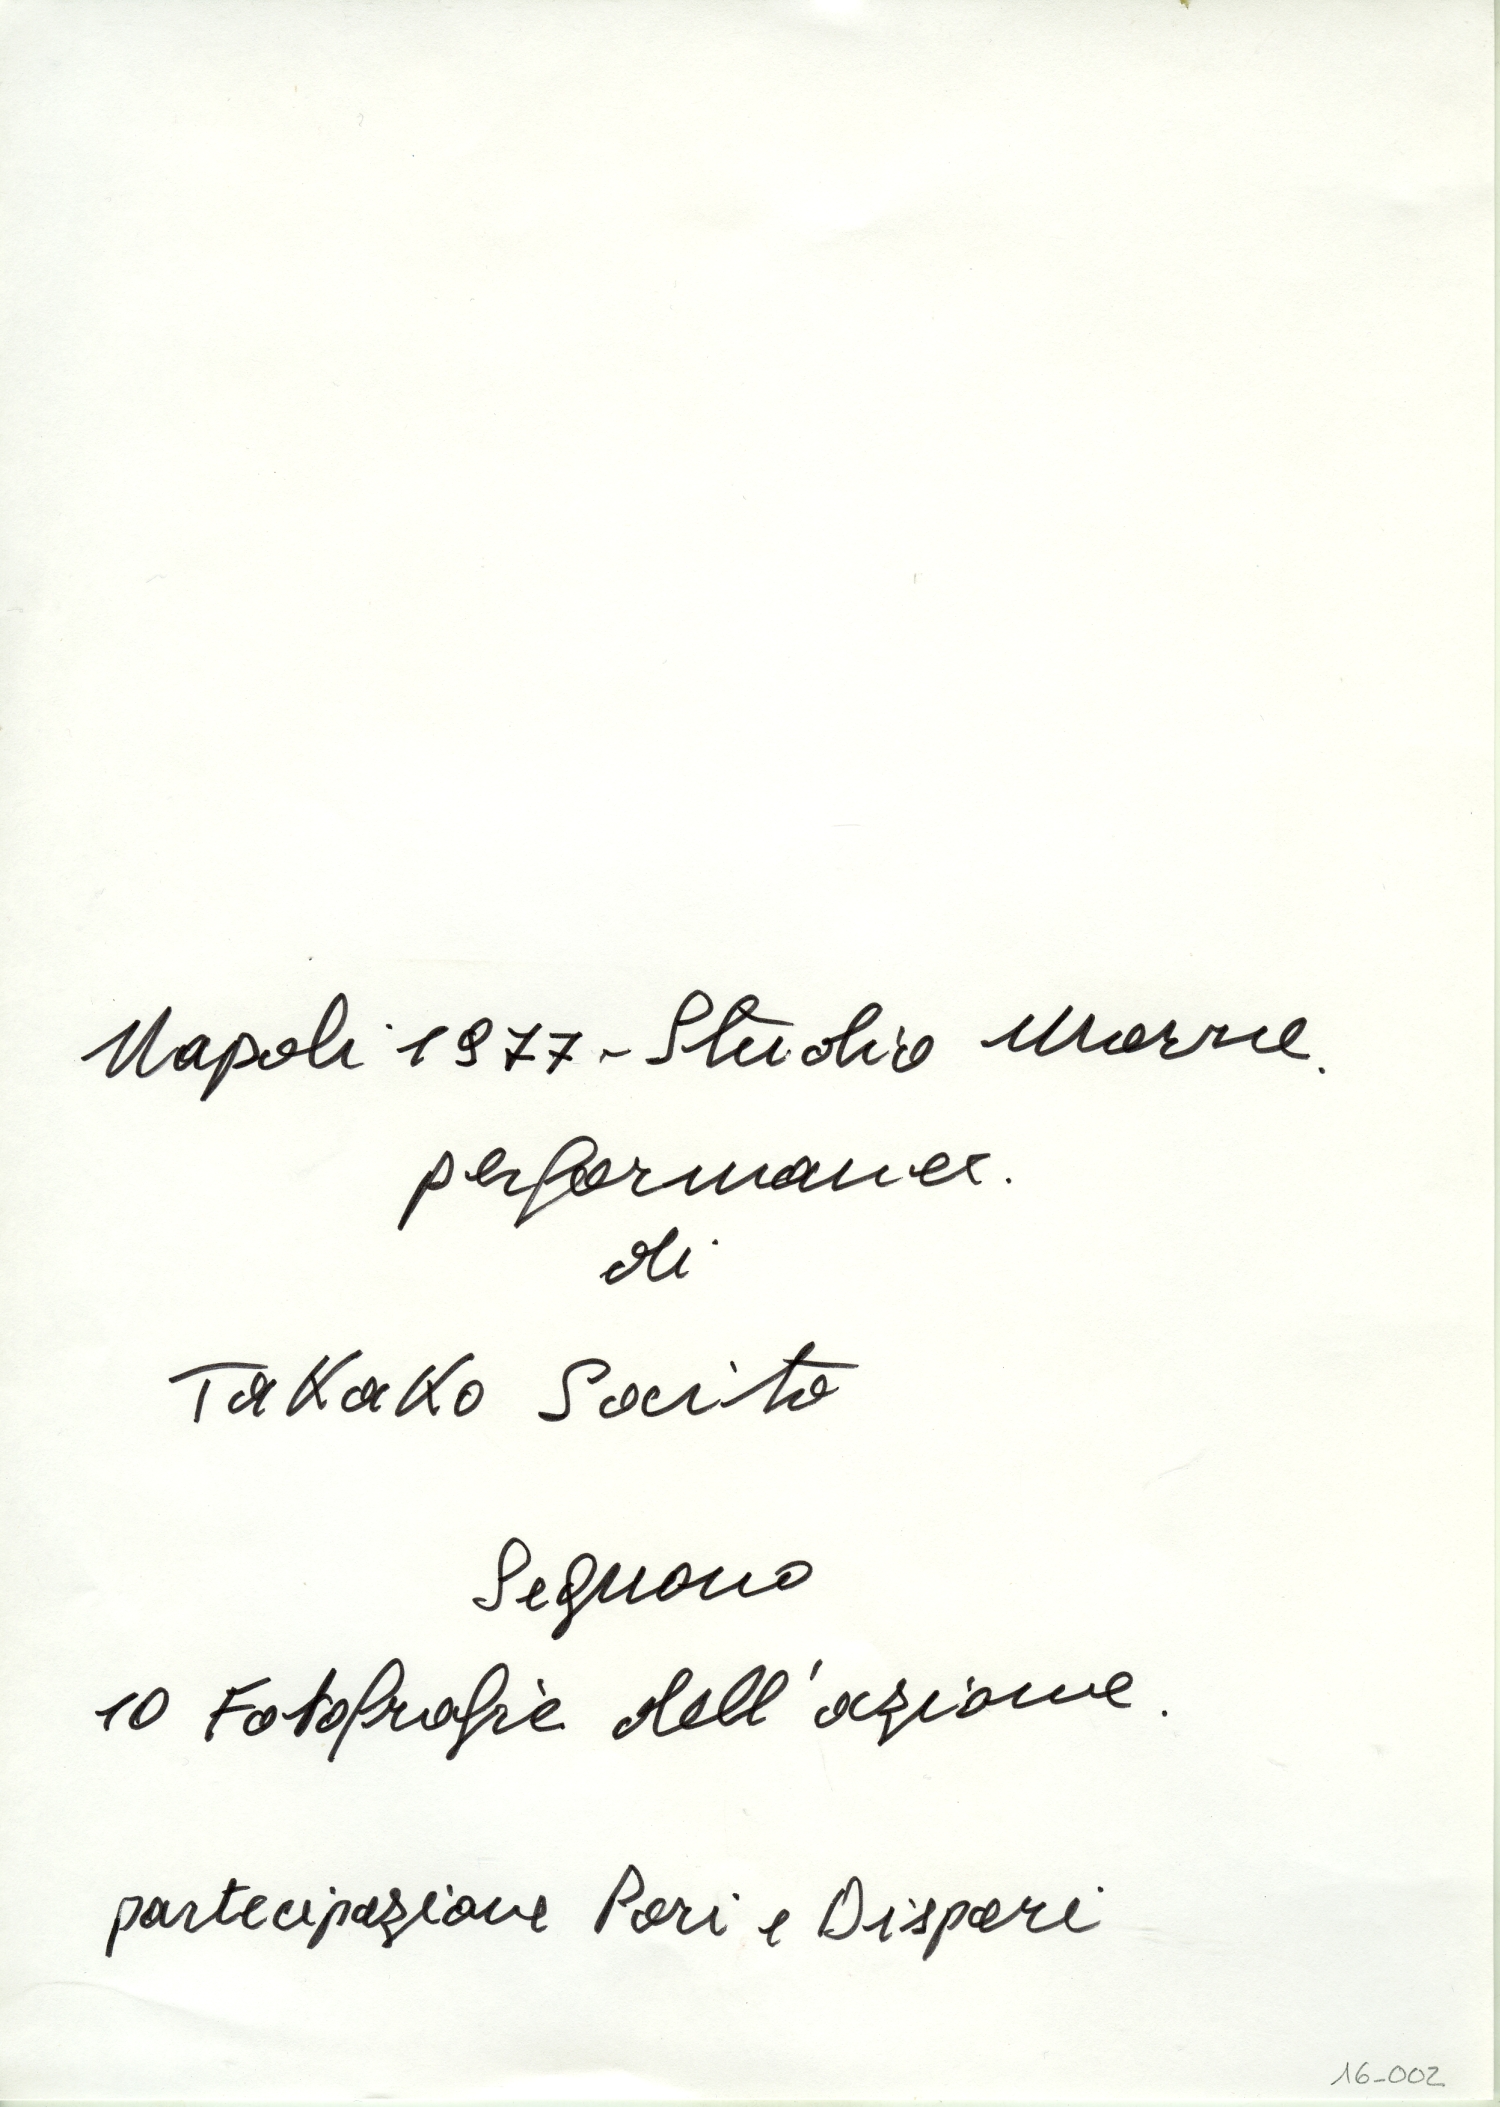 Napoli 1977 - Studio Morra.
performance.
di
TaKaKo Saito
Seguono
10 Fotografie dell'azione.
partecipazione Pari e Dispari
16-002